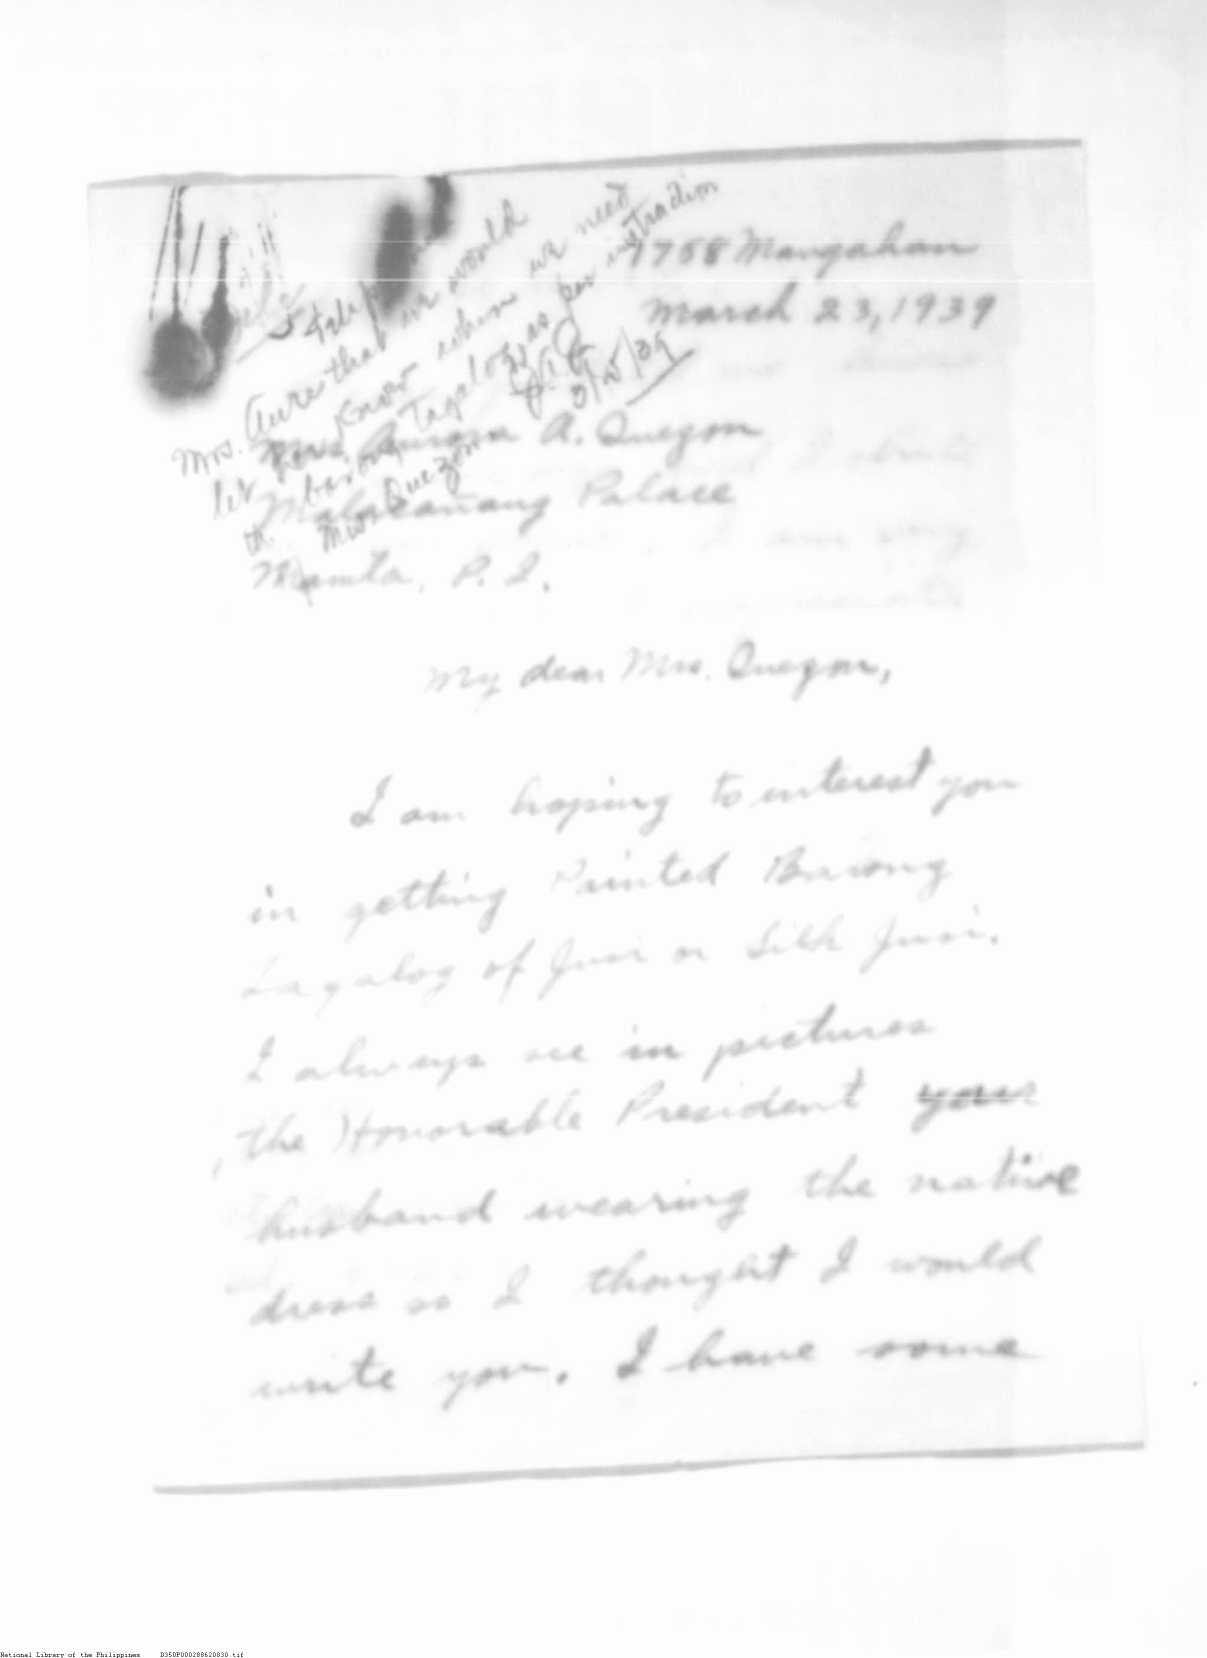 1758 Mangahan
March 23, 1939
Mrs. Aure that we would
let her know when we need
th barong Tagalog, as per instruction
Mrs. Quezon
3/25/39
Mrs. Aurora A. Quezon
Malacañang Palace
Manila, P. I.
My dear Mrs. Quezon,
I am hoping to interest you
in getting Painted Barong
Tagalog of Jusi or Silk Jusi.
I always see in pictures
the Honorable President your
husband wearing the native
dress so I thought I would
write you. I have some
National Library of the Philippines D350P000288620830.tif